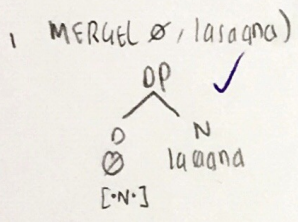 1 MERGE( ∅, lasagna)
DP
D N
∅ lasagna
[·N·]